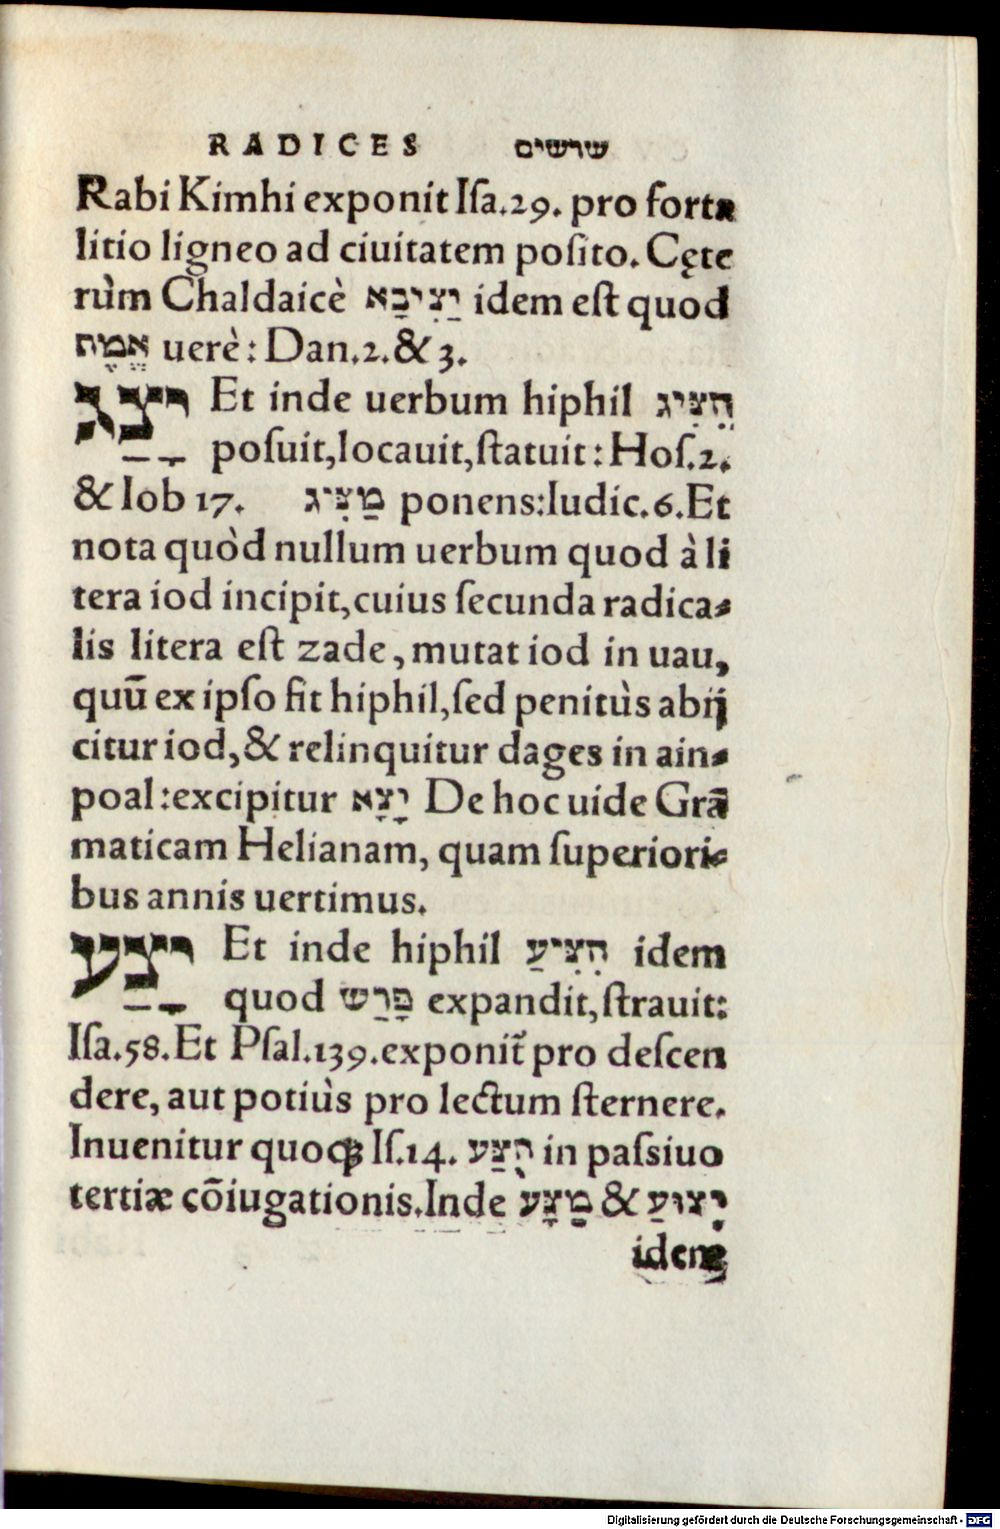 RADICES שרשים
Rabi Kimhi exponit Iſa.29. pro forta
litio ligneo ad ciuitatem poſito. Cęte
rùm Chaldaicè יַצִיבָא idem eſt quod
אֱמֶת uerè: Dan.2.& 3.
יָצַג Et inde uerbum hiphil הִצִּיג
poſuit, locauit, ſtatuit: Hoſ.2.
& Iob 17. מַצִּיג ponens: Iudic.6. Et
nota quòd nullum uerbum quod à li
tera iod incipit, cuius ſecunda radica-
lis litera eſt zade, mutat iod in uau,
quũ ex ipſo fit hiphil, ſed penitùs abij
citur iod, & relinquitur dages in ain-
poal: excipitur יָצָא De hoc uide Grã
maticam Helianam, quam ſuperiori-
bus annis uertimus.
יָצַע Et inde hiphil הִצִּיעַ idem
quod פָּרַשׂ expandit, ſtrauit:
Iſa.58. Et Pſal.139. exponit᷑ pro deſcen
dere, aut potiùs pro lectum ſternere.
Inuenitur quoqꝫ Iſ.14. הֻצַּע in paſsiuo
tertiæ cõiugationis. Inde מַצָּע & יָצוּעַ
idem
Digitalisierung gefördert durch die Deutsche Forschungsgemeinschaft - DFG